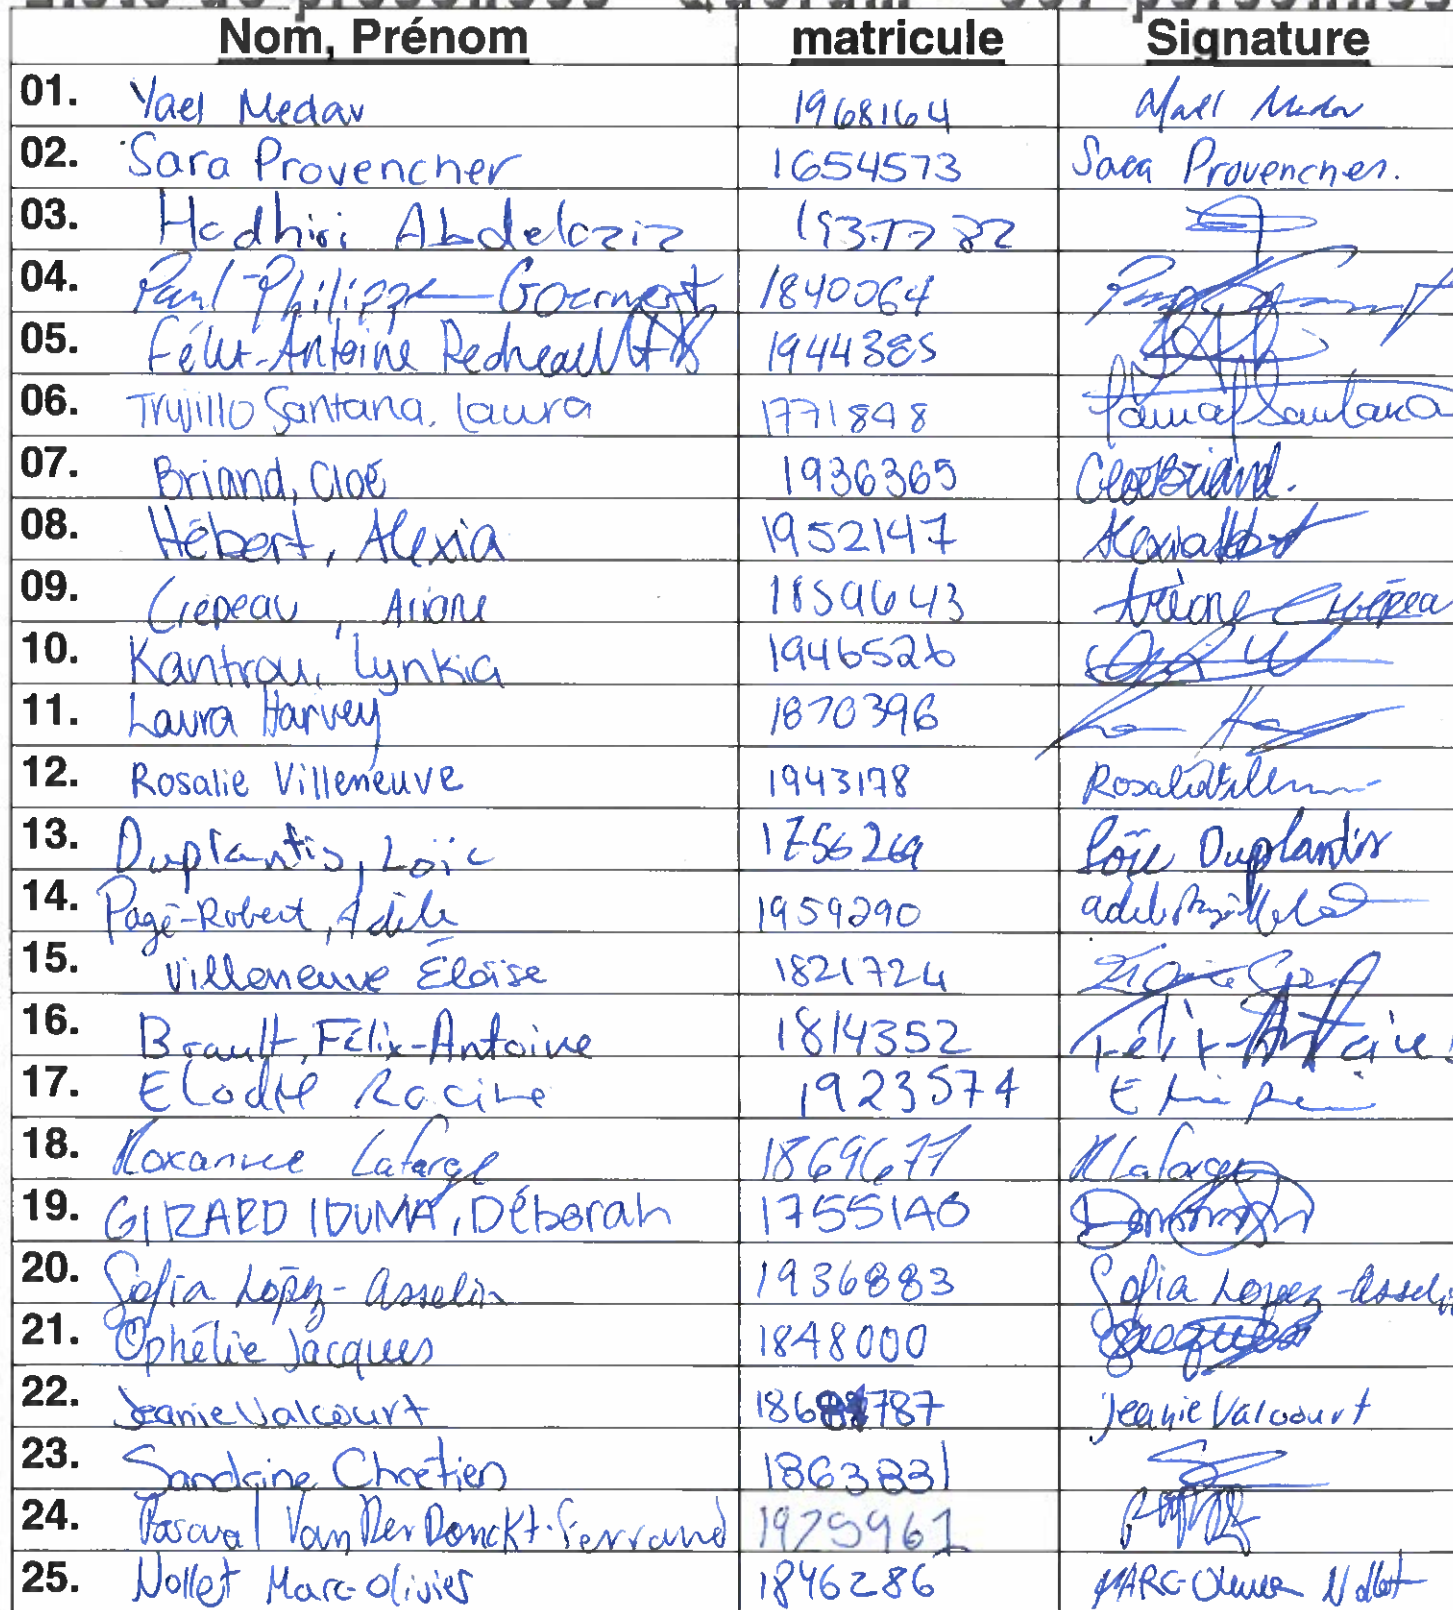 Nom, Prénom matricule Signature
01. Yael Medav 1968164
02. Sara Provencher 1654573 Sara Provencher.
03. Hadhiri Abdelaziz
04. Paul-Philippe 1840064
05. Félix-Antoine 1944385
06. Trujillo Santana, Laura 1771848
07. Briand, Cloé 1936365 Cloé Briand.
08. Hébert, Alexia 1952147
09. Crépeau, Ariane 1859643 Ariane Crépea
10. Kantrou, Lynkia 1946526
11. Laura Harvey 1870396
12. Rosalie Villeneuve 1943178
13. Duplantis, Loïc 1756269 Loïc Duplantis
14. Pagé-Robert, Adèle 1959290
15. Villeneuve Éloïse 1821724
16. Brault, Félix-Antoine 1814352 Félix-Antoine
17. Elodie Racine 1923574
18. Roxanne Lafarge 1869677 R Lafarge
19. GIZARD IDUMA, Déborah 1755140
20. Sofia López-Asselin 1936883 Sofia Lopez-Asselin
21. Ophélie Jacques 1848000 Jacques
22. Jeanie Valcourt Jeanie Valcourt
23. Sandrine Chrétien 1863831
24. Pascual Van Der Donckt-Ferrand 1929961
25. Nollet Marc-Olivier 1846286 MARC-Olivier Nollet